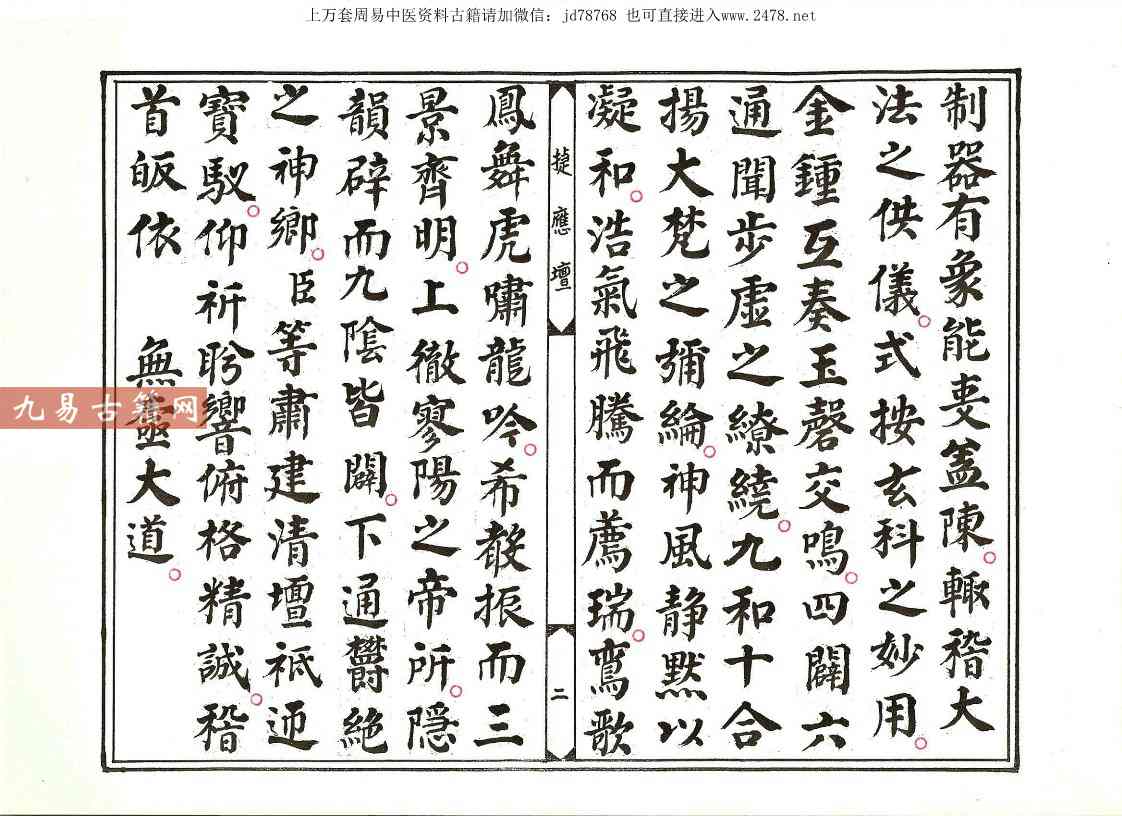 上万套周易中医资料古籍请加微信：jd78768 也可直接进入www.2478.net
制器有象能叓盖陳。輙稽大
法之供儀。式按玄科之妙用。
金鍾互奏玉磬交鳴。四闢六
通聞步虛之繚繞。九和十合
揚大梵之彌綸。神風静默以
凝和。浩氣飛騰而薦瑞。鸞歌
㨗應壇
二
鳳舞虎嘯龍吟。希聲振而三
景齊明。上徹寥陽之帝所。隱
韻辟而九陰皆闢。下通欝絶
之神鄉。臣等肅建清壇祗迊
寶馭。仰祈肹響俯格精誠。稽
首皈依 無靈大道。
九易古籍网